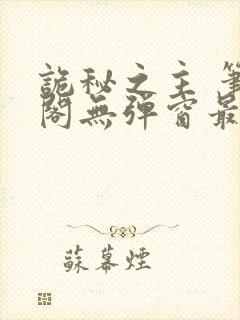 詭秘之主 筆
閣無彈窗最
蘇幕煙